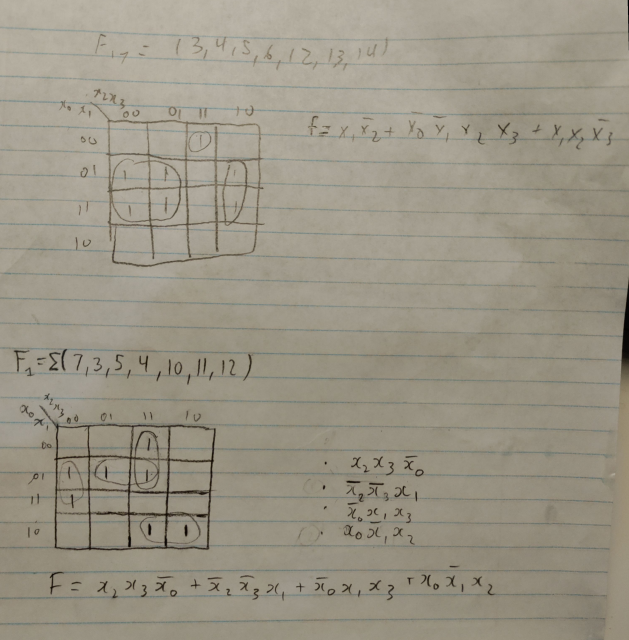 = (3,4,5,6,12,13,14)
x₂x₃
x₀ x₁ 00 01 11 10
00 1
01 1 1 1
11 1 1 1
10
f = x₁x̄₂ + x̄₀ x̄₁ x₂ x₃ + x₁x₂x̄₃
F₁=Σ(7,3,5,4,10,11,12)
x₂x₃
x₀ x₁ 00 01 11 10
00 1
01 1 1 1
11 1
10 1 1
· x₂ x₃ x̄₀
· x̄₂ x̄₃ x₁
· x̄₀ x₁ x₃
· x₀ x̄₁ x₂
F = x₂ x₃ x̄₀ + x̄₂ x̄₃ x₁ + x̄₀ x₁ x₃ + x₀ x̄₁ x₂